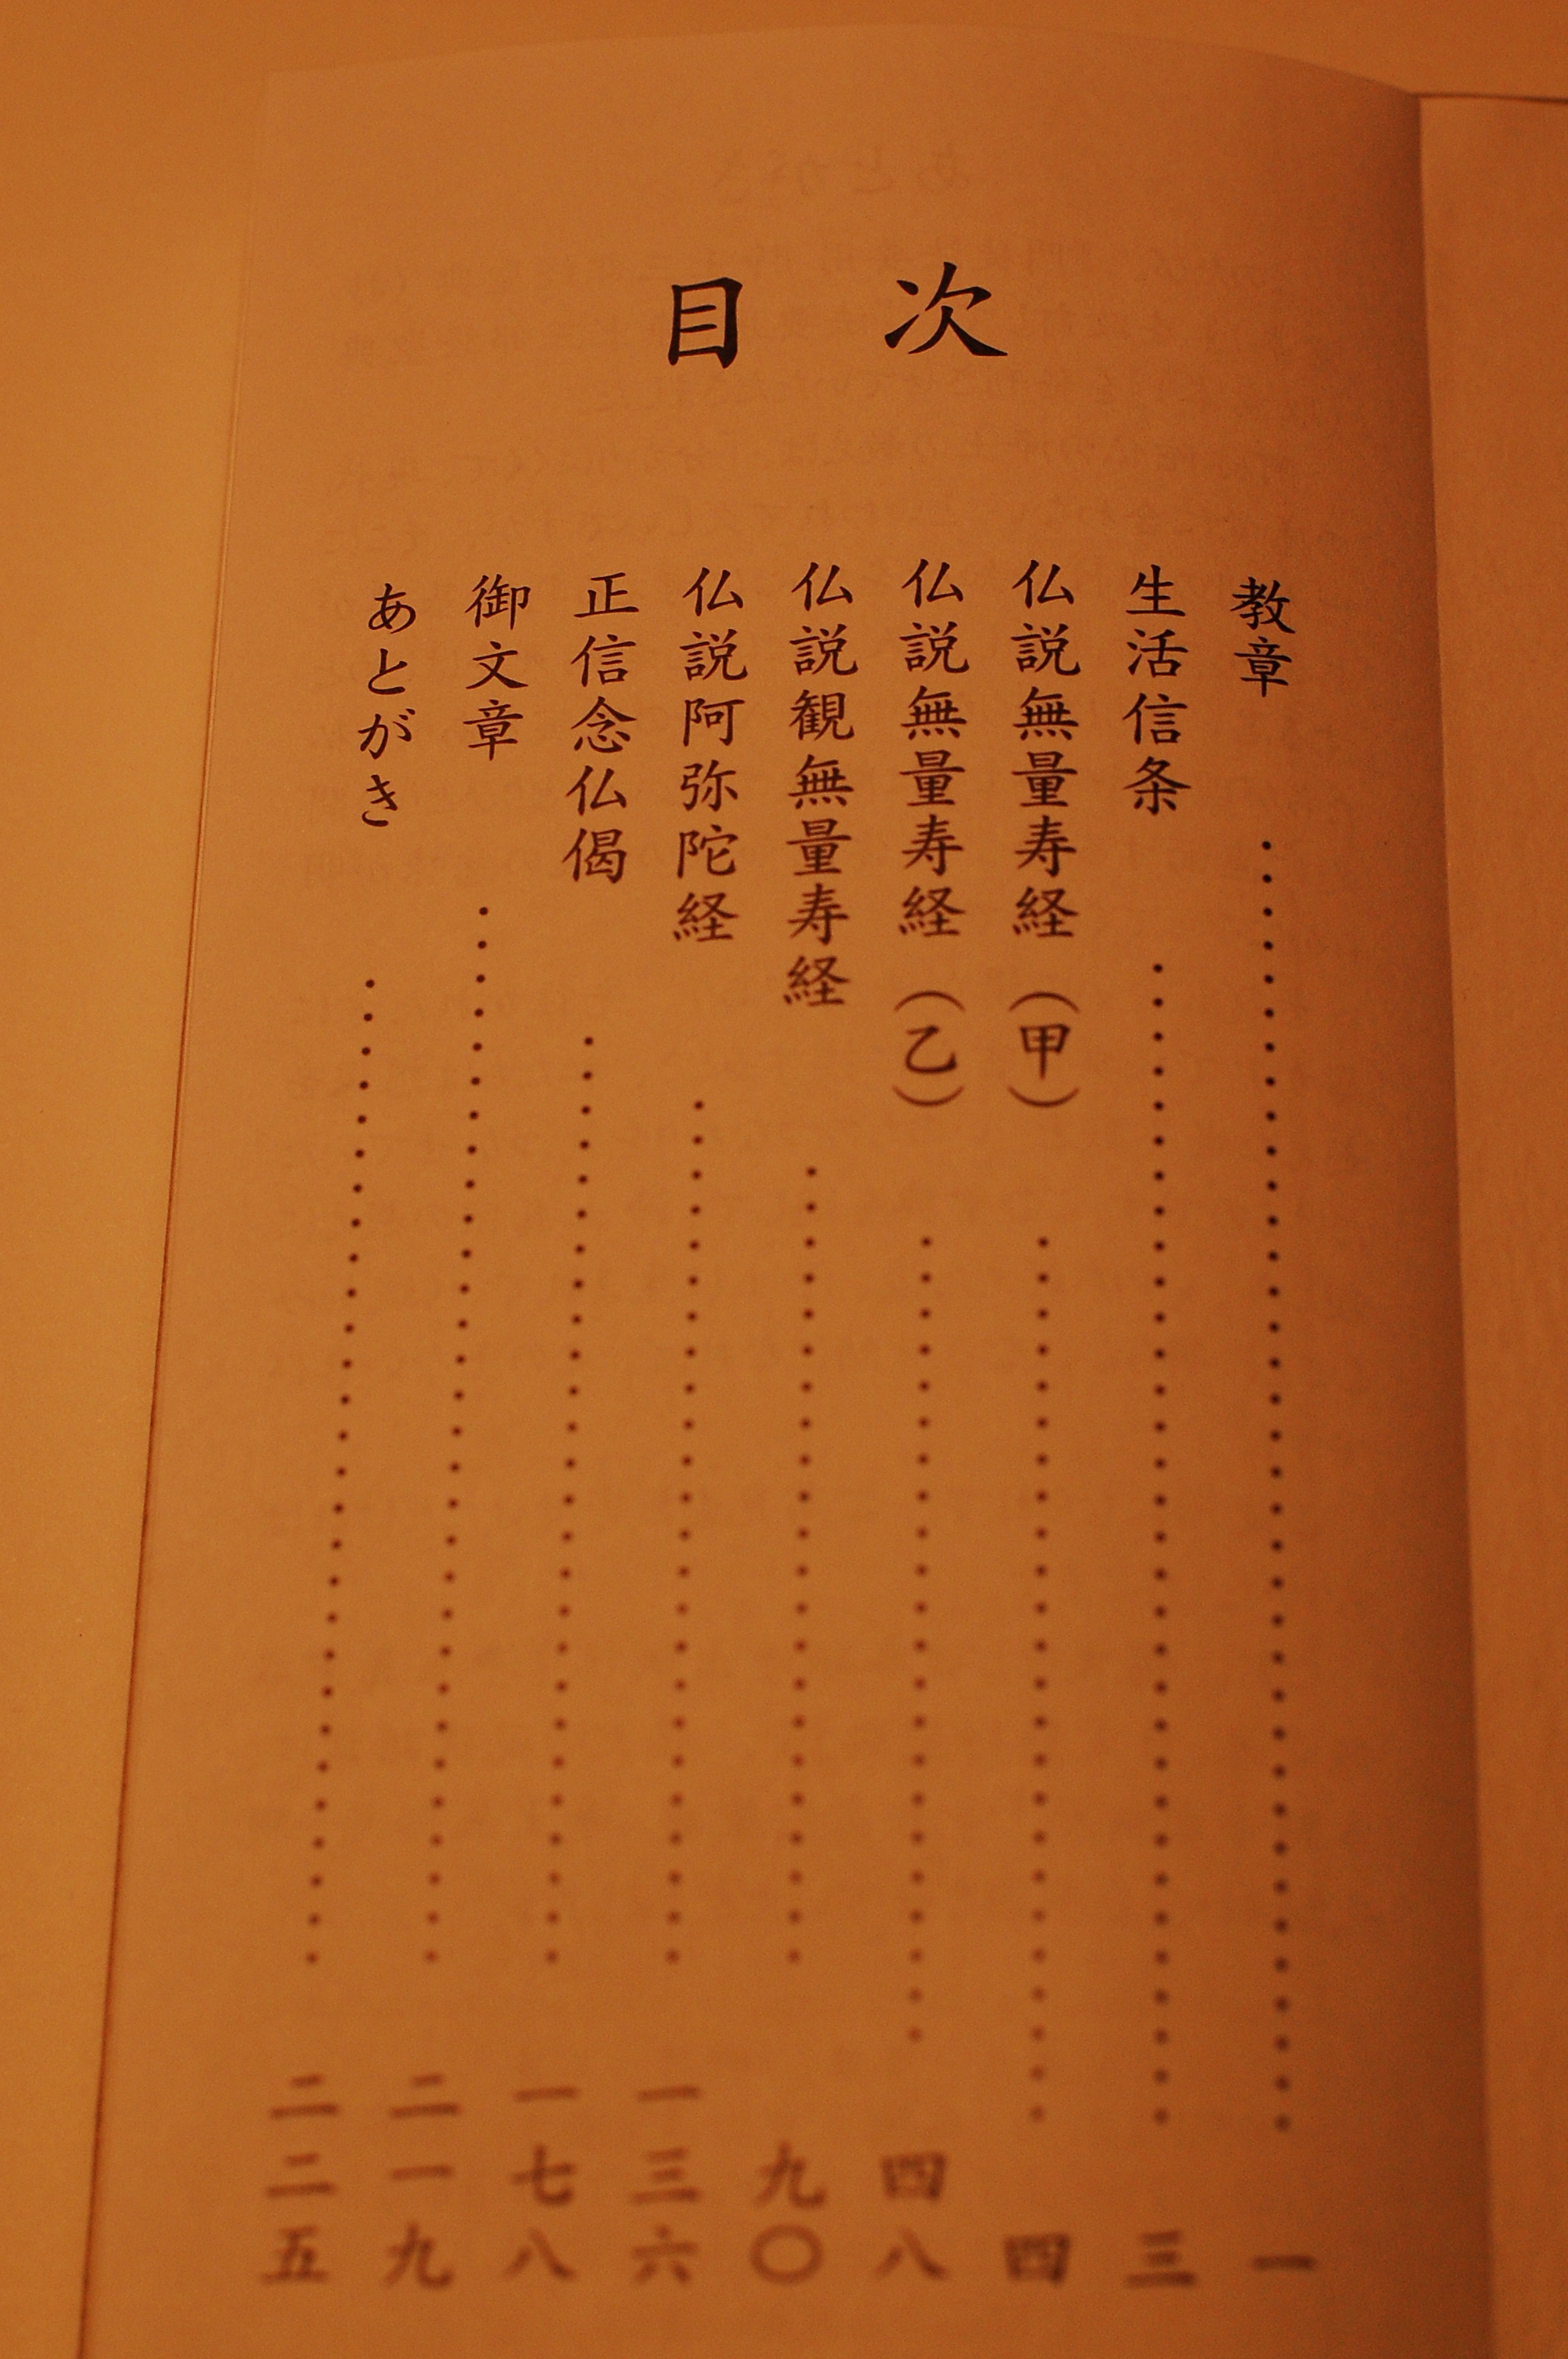 目次
教章 一
生活信条 三
仏説無量寿経（甲） 四
仏説無量寿経（乙） 四八
仏説観無量寿経 九〇
仏説阿弥陀経 一三六
正信念仏偈 一七八
御文章 二一九
あとがき 二二五